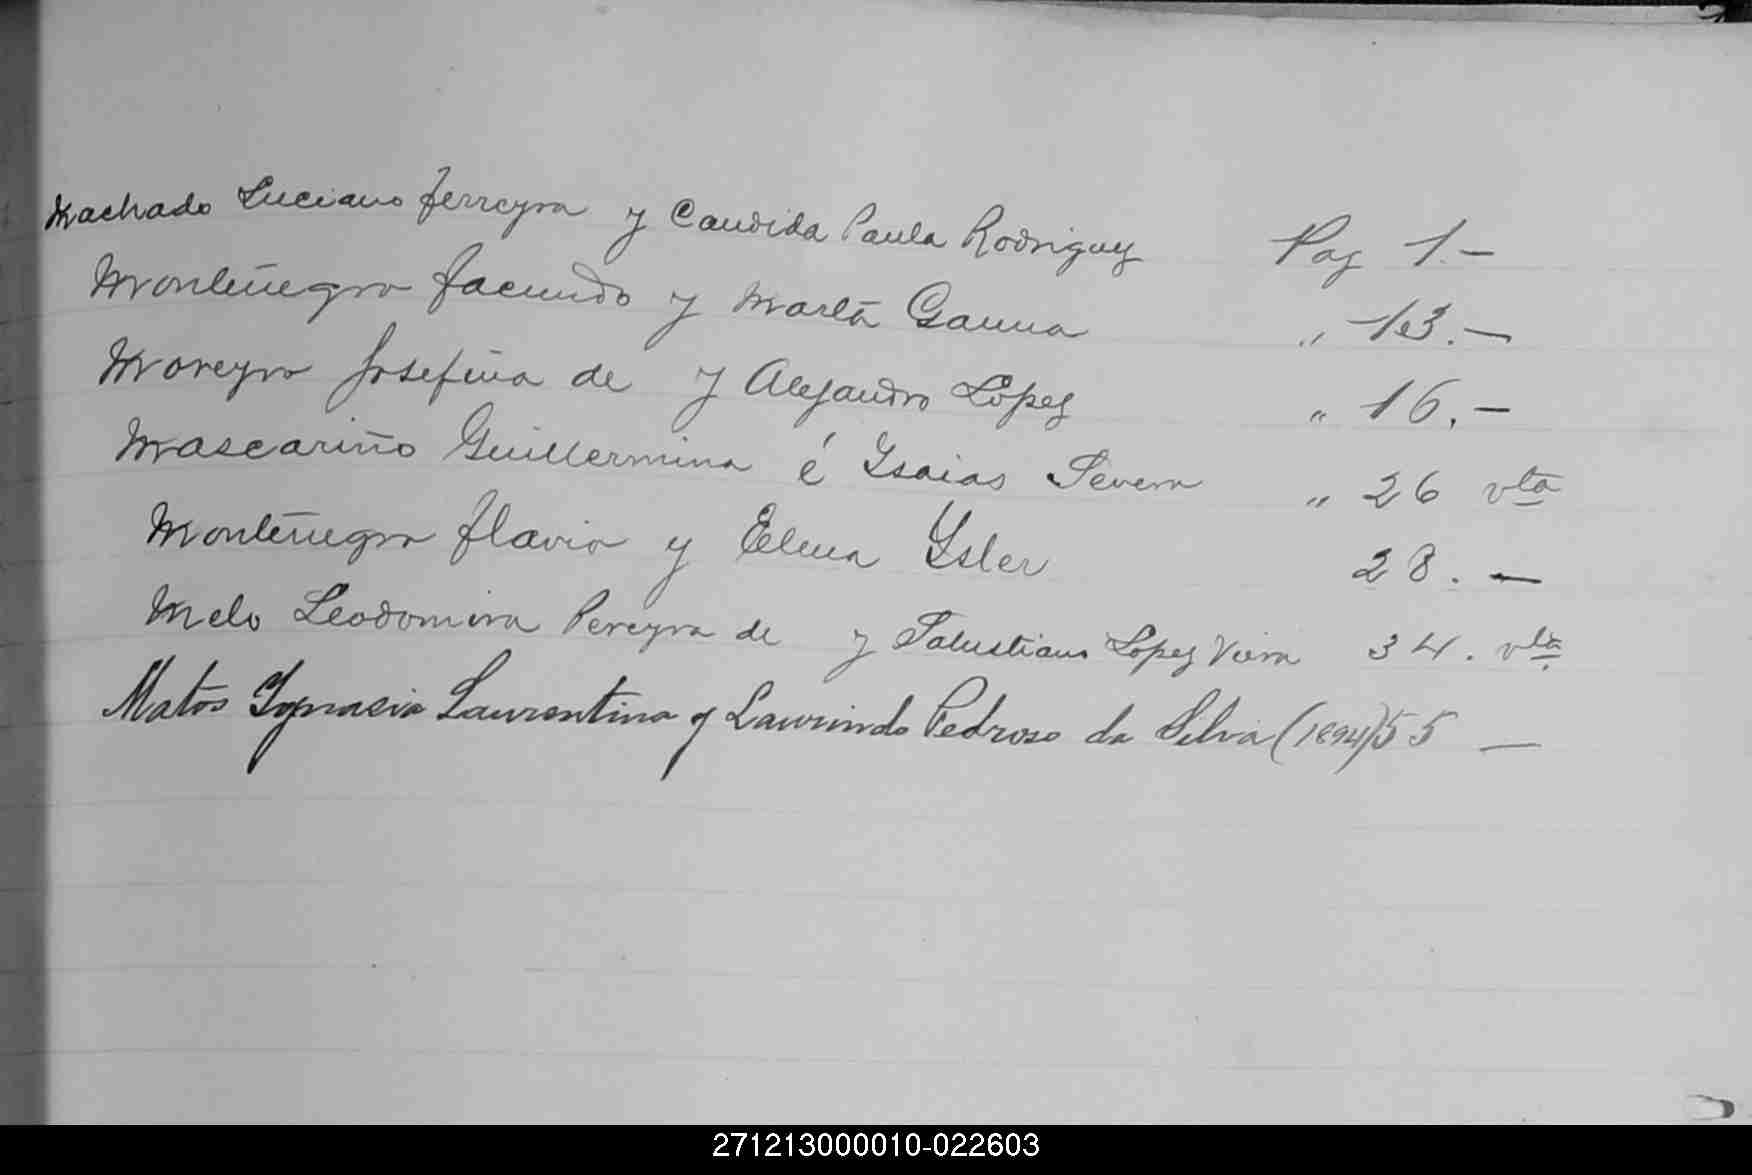 Machado Luciano Ferreyra y Candida Paula Rodriguez Pag 1.-
Montenegro Facundo y Marta Gauna " 13.-
Moreyra Josefina de y Alejandro Lopez " 16.-
Mascariño Guillermina é Ysaias Severa " 26 vta
Montenegro Flavio y Elena Ysler 28.-
Melo Leodomira Pereyra de y Salustiano Lopez Viera 34. vta
Matos Ygnasia Laurentina y Laurindo Pedroso da Silva (1894) 55 -
271213000010-022603